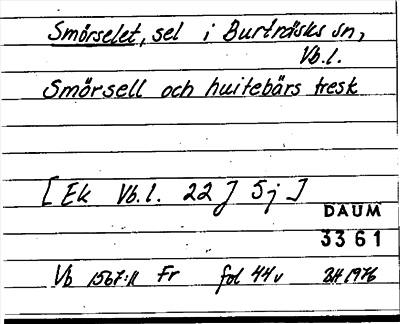 Smörselet, sel i Burträsks sn,
Vb.l.
Smörsell och huitebärs tresk
[Ek Vb.l. 22] 5j]
DAUM
3361
Vb 1567:11 Fr fol 44v BH 1976